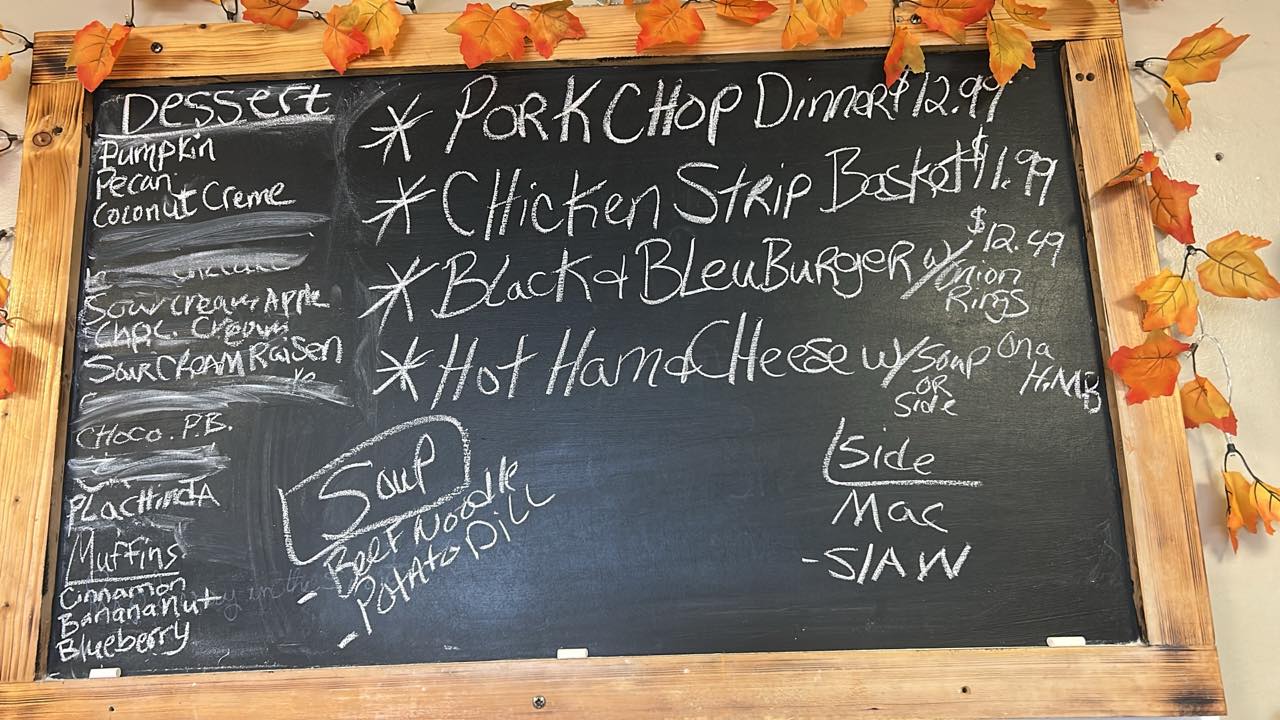 Dessert
Pumpkin
Pecan
Coconut Creme
Sour Cream Apple
Choc. Cream
Sour Cream Raisen
Choco. P.B.
Plachinda
Muffins
Cinnamon
Banana nut
Blueberry
* Pork Chop Dinner $12.99
* Chicken Strip Basket $1.99
* Black & Bleu Burger w/ Onion Rings $12.49
* Hot Ham & Cheese w/ Soup or Side On a H.M.B
Soup
- Beef Noodle
- Potato Dill
Side
Mac
- Slaw